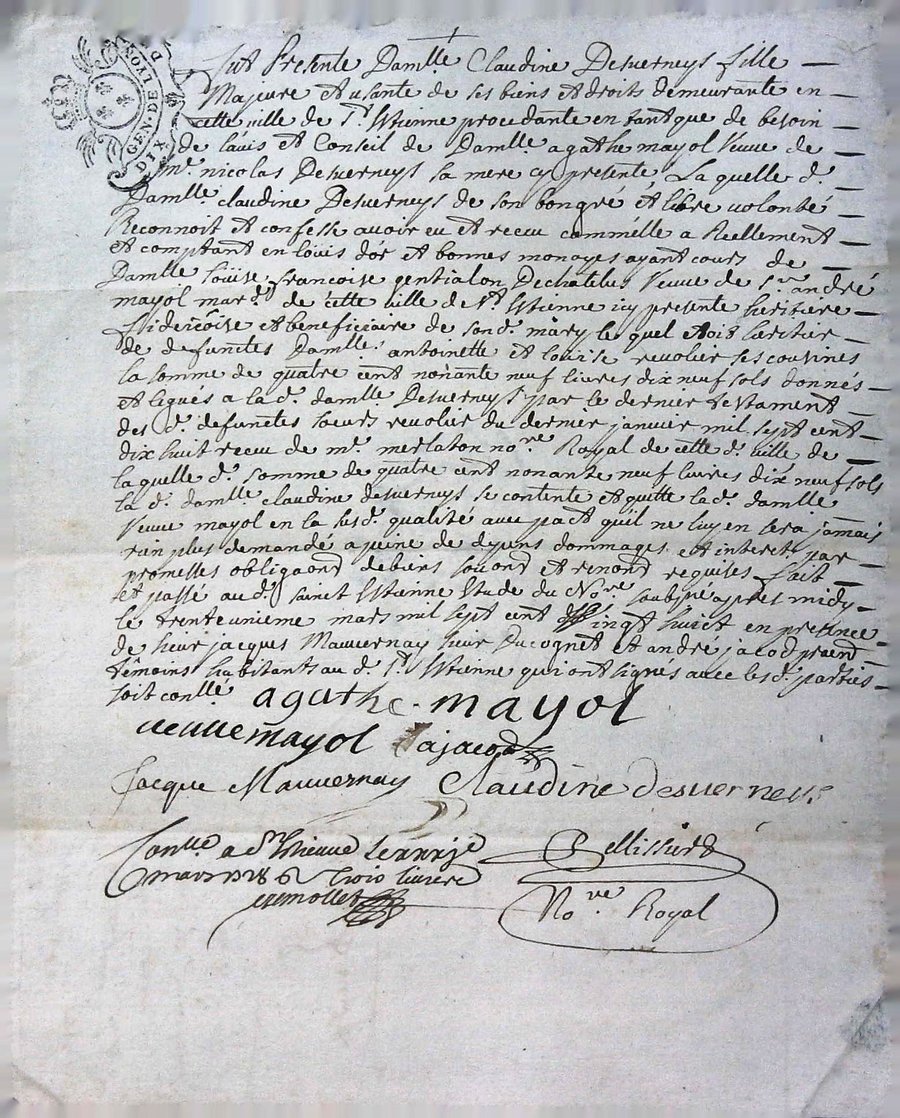 GEN. DE LYON
DIX
Fut Presente Damlle Claudine Desverneys fille
Majeure et usante de ses biens et droit demeurante en
cette ville de St Estienne procedante en tant que de besoin
de l'avis et Conseil de Damlle agathe mayol veuve de
mre nicolas Desverneys sa mere cy presente, La quelle d.
Damlle claudine Desverneys de son bon gré et libre volonté
Reconnoit et confesse avoir eu et receu comm'elle a Reellement
et comptant en louis d'or et bonnes monoyes ayant cours de
Damlle Loüise francoise gentialon Dechatelus Veuve de Sr andré
mayol mard. de cette ville de St Estienne icy presente heritiere
et beneficiaire de sond. mary le quel etoit heritier
de defunctes Damlle. antoinette et louise revolier ses cousines
la somme de quatre cent nonante neuf livres dix neuf sols donnés
et legués a la d. damlle Desverneys par le dernier testament
des d. defunctes soeurs revolier du dernier janvier mil sept cent
dix huit receu de mre merlaton nore Royal de cette d. ville de
laquelle d. somme de quatre cent nonante neuf livres dix neuf sols
la d. damlle claudine desverneys se contente et quitte lad. damlle
Veuve mayol en la susd. qualité avec pact qu'il ne luy en sera jamais
rien plus demandé a peine de depens dommages et interet par
promesses obligaond de biens et renond requises fait
et passé aud. saint Estienne Etude du Nore soubsne apres midy
le trente unieme mars mil sept cent vingt huict en presence
de sieur jacques Mauvernay sieur Ducognet et andré jacod
témoins habitant au d. St Estienne qui ont signés avec lesd. parties
soit conlle
agathe. mayol
veuve mayol ajacod
Jacque Mauvernay Claudine desverneys
Conlle a St Estienne le
mars 1728 Trois livres
Pellissier
Nore Royal